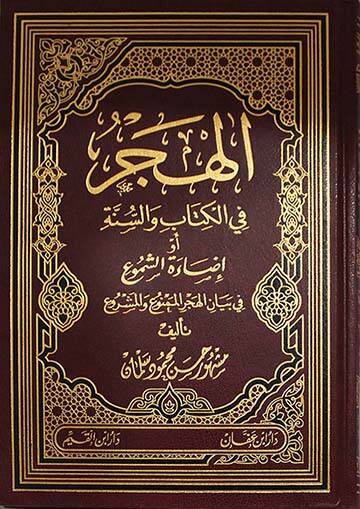 الهَجْر
في الكِتَابِ وَالسُّنَّة
أو
إضَاءَة الشُّمُوع
في بَيَان الهَجْر المَمْنُوع وَالمَشْرُوع
تأليف
مشهور حسن محمود سلمان
دَار ابن عفّان
دَار ابن القَيِّم